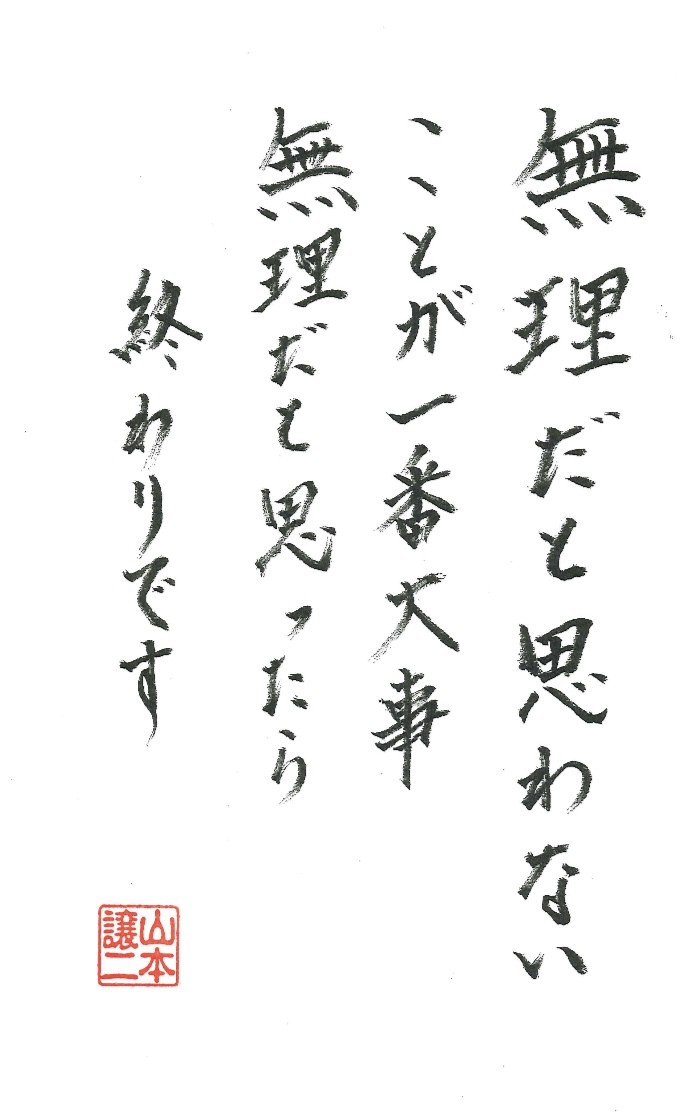 無理だと思わない
ことが一番大事
無理だと思ったら
終わりです
山本
譲二